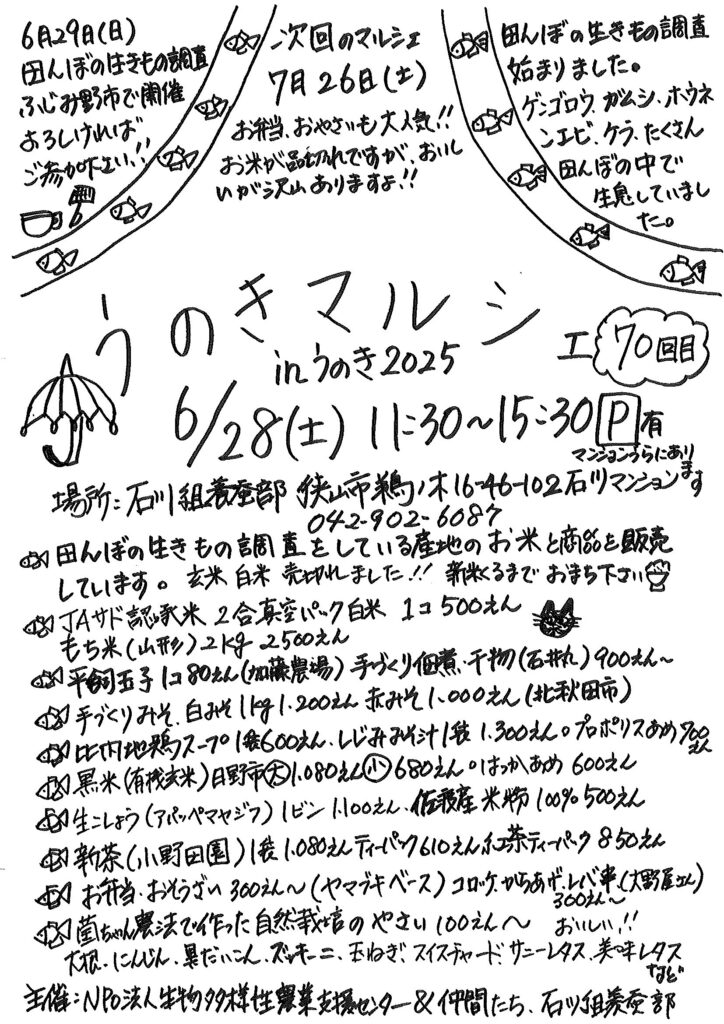 6月29日(日)
田んぼの生きもの調査
ふじみ野市で開催
よろしければ
ご参加下さい!!
次回のマルシェ
7月26日(土)
お弁当、おやさいも大人気!!
お米が品切れですが、おいし
いがっ沢山ありますよ!!
田んぼの生きもの調査
始まりました。
ゲンゴロウ、ガムシ、ホウネ
ンエビ、ケラ、たくさん
田んぼの中で
生息していまし
た。
うのきマルシェ
70回目
inうのき2025
6/28(土) 11:30〜15:30 P有
マンションうらにあります
場所:石川組養蚕部 狭山市鵜ノ木16-46-102石川マンション
042-902-6087
田んぼの生きもの調査をしている産地のお米と商品を販売
しています。玄米 白米 売切れました!! 新米くるまでおまち下さい
JAサド認証米 2合真空パック白米 1コ500えん
もち米(山形)2kg 2500えん
平飼玉子1コ80えん(加藤農場)手づくり佃煮・干物(石井丸)900えん〜
手づくりみそ、白みそ1kg1.200えん 赤みそ1.000えん(北秋田市)
比内地鶏スープ1袋600えん、しじみみそ汁1袋1.300えん。プロポリスあめ900えん
黒米(有機玄米)日野市大1.080えん小680えん。はっかあめ600えん
生こしょう(アパッペマヤジフ)1ビン1.100えん、佐渡産米粉100%500えん
新茶(小野田園)1袋1.080えんティーパック610えん紅茶ティーパック850えん
お弁当、おそうざい300えん〜(ヤマブキベース)コロッケ、からあげ、レバ串(大野屋さん)
300えん〜
菌ちゃん農法で作った自然栽培のやさい100えん〜 おいしい!!
大根、にんじん、黒だいこん、ズッキーニ、玉ねぎ、スイスチャード、サニーレタス、美味レタス
など
主催:NPO法人生物多様性農業支援センター&仲間たち、石川組養蚕部